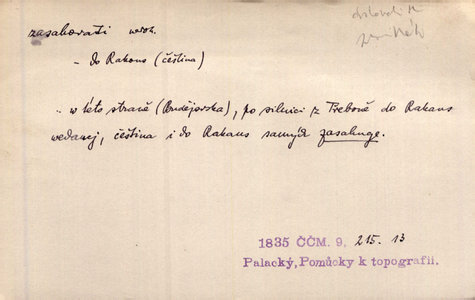 zasahovati nedok.
- do Rakous (čeština)
.. w této straně (Budějovska), po silnici z Třeboně do Rakous
wedaucj, čeština i do Rakaus samých zasahuge.
1835 ČČM. 9, 215. 13
Palacký, Pomůcky k topografii.